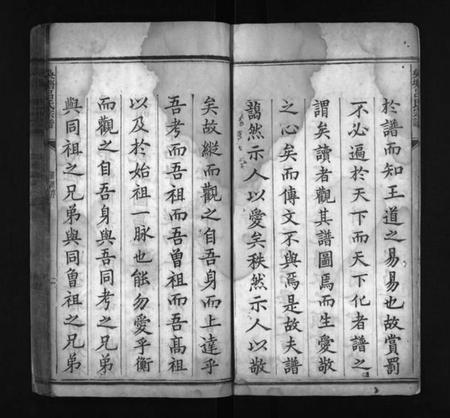 於譜而知王道之易易也故賞罰
不必遍於天下而天下化者譜之
謂矣讀者觀其譜圖焉而生愛敬
之心矣而傳文不與焉是故夫譜
藹然示人以愛矣秩然示人以敬
矣故縱而觀之自吾身而上達乎
吾考而吾祖而吾曾祖而吾髙祖
以及於始祖一脉也能勿愛乎衡
而觀之自吾身與吾同考之兄弟
與同祖之兄弟與同曾祖之兄弟